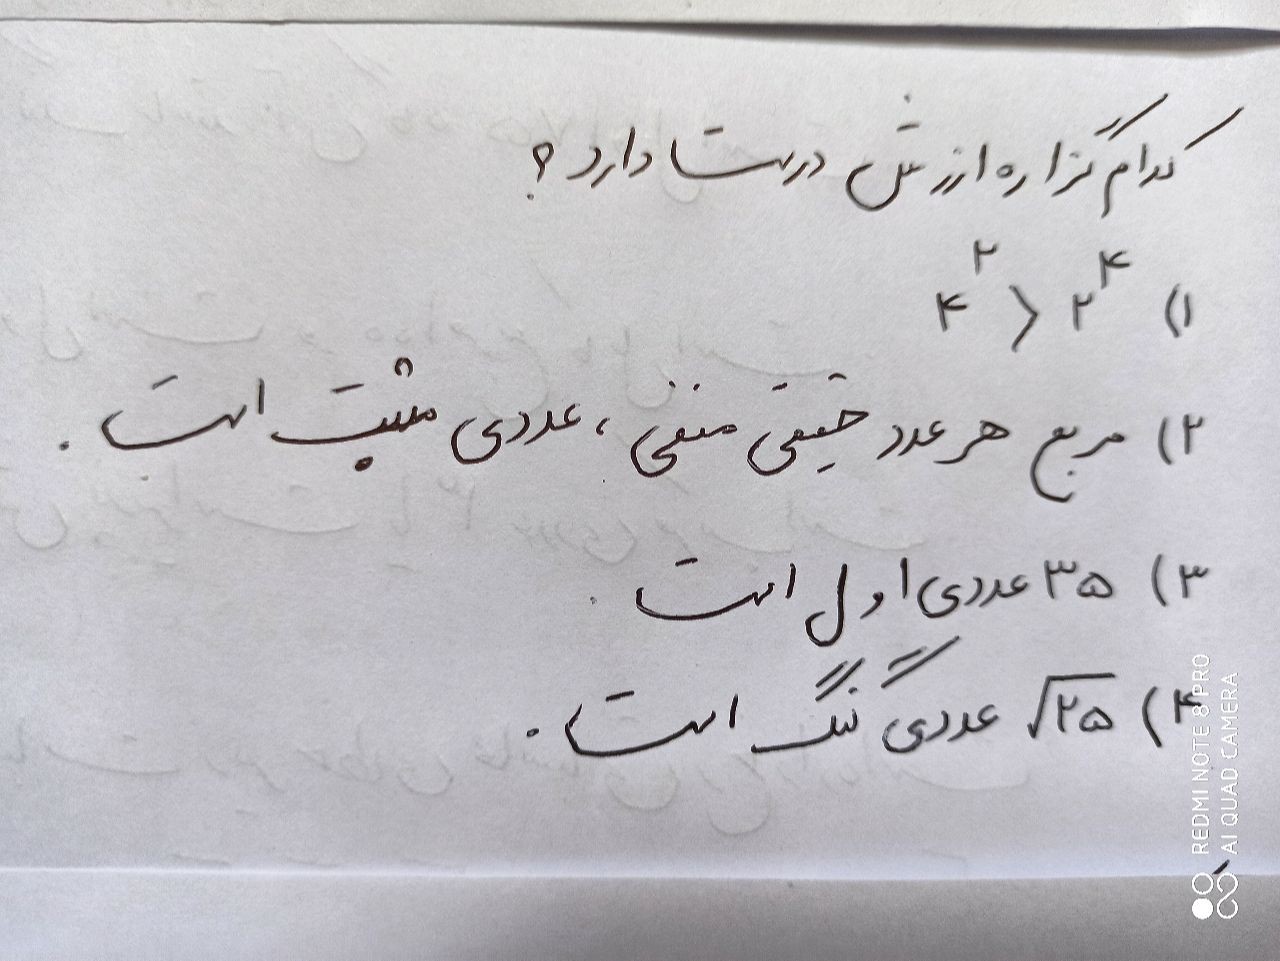 کدام گزاره ارزش درست دارد؟
۱) ۴^۲ > ۲^۴
۲) مربع هر عدد حقیقی منفی، عددی مثبت است.
۳) ۳۵ عددی اول است.
۴) √۲۵ عددی گنگ است.
REDMI NOTE 8 PRO
AI QUAD CAMERA